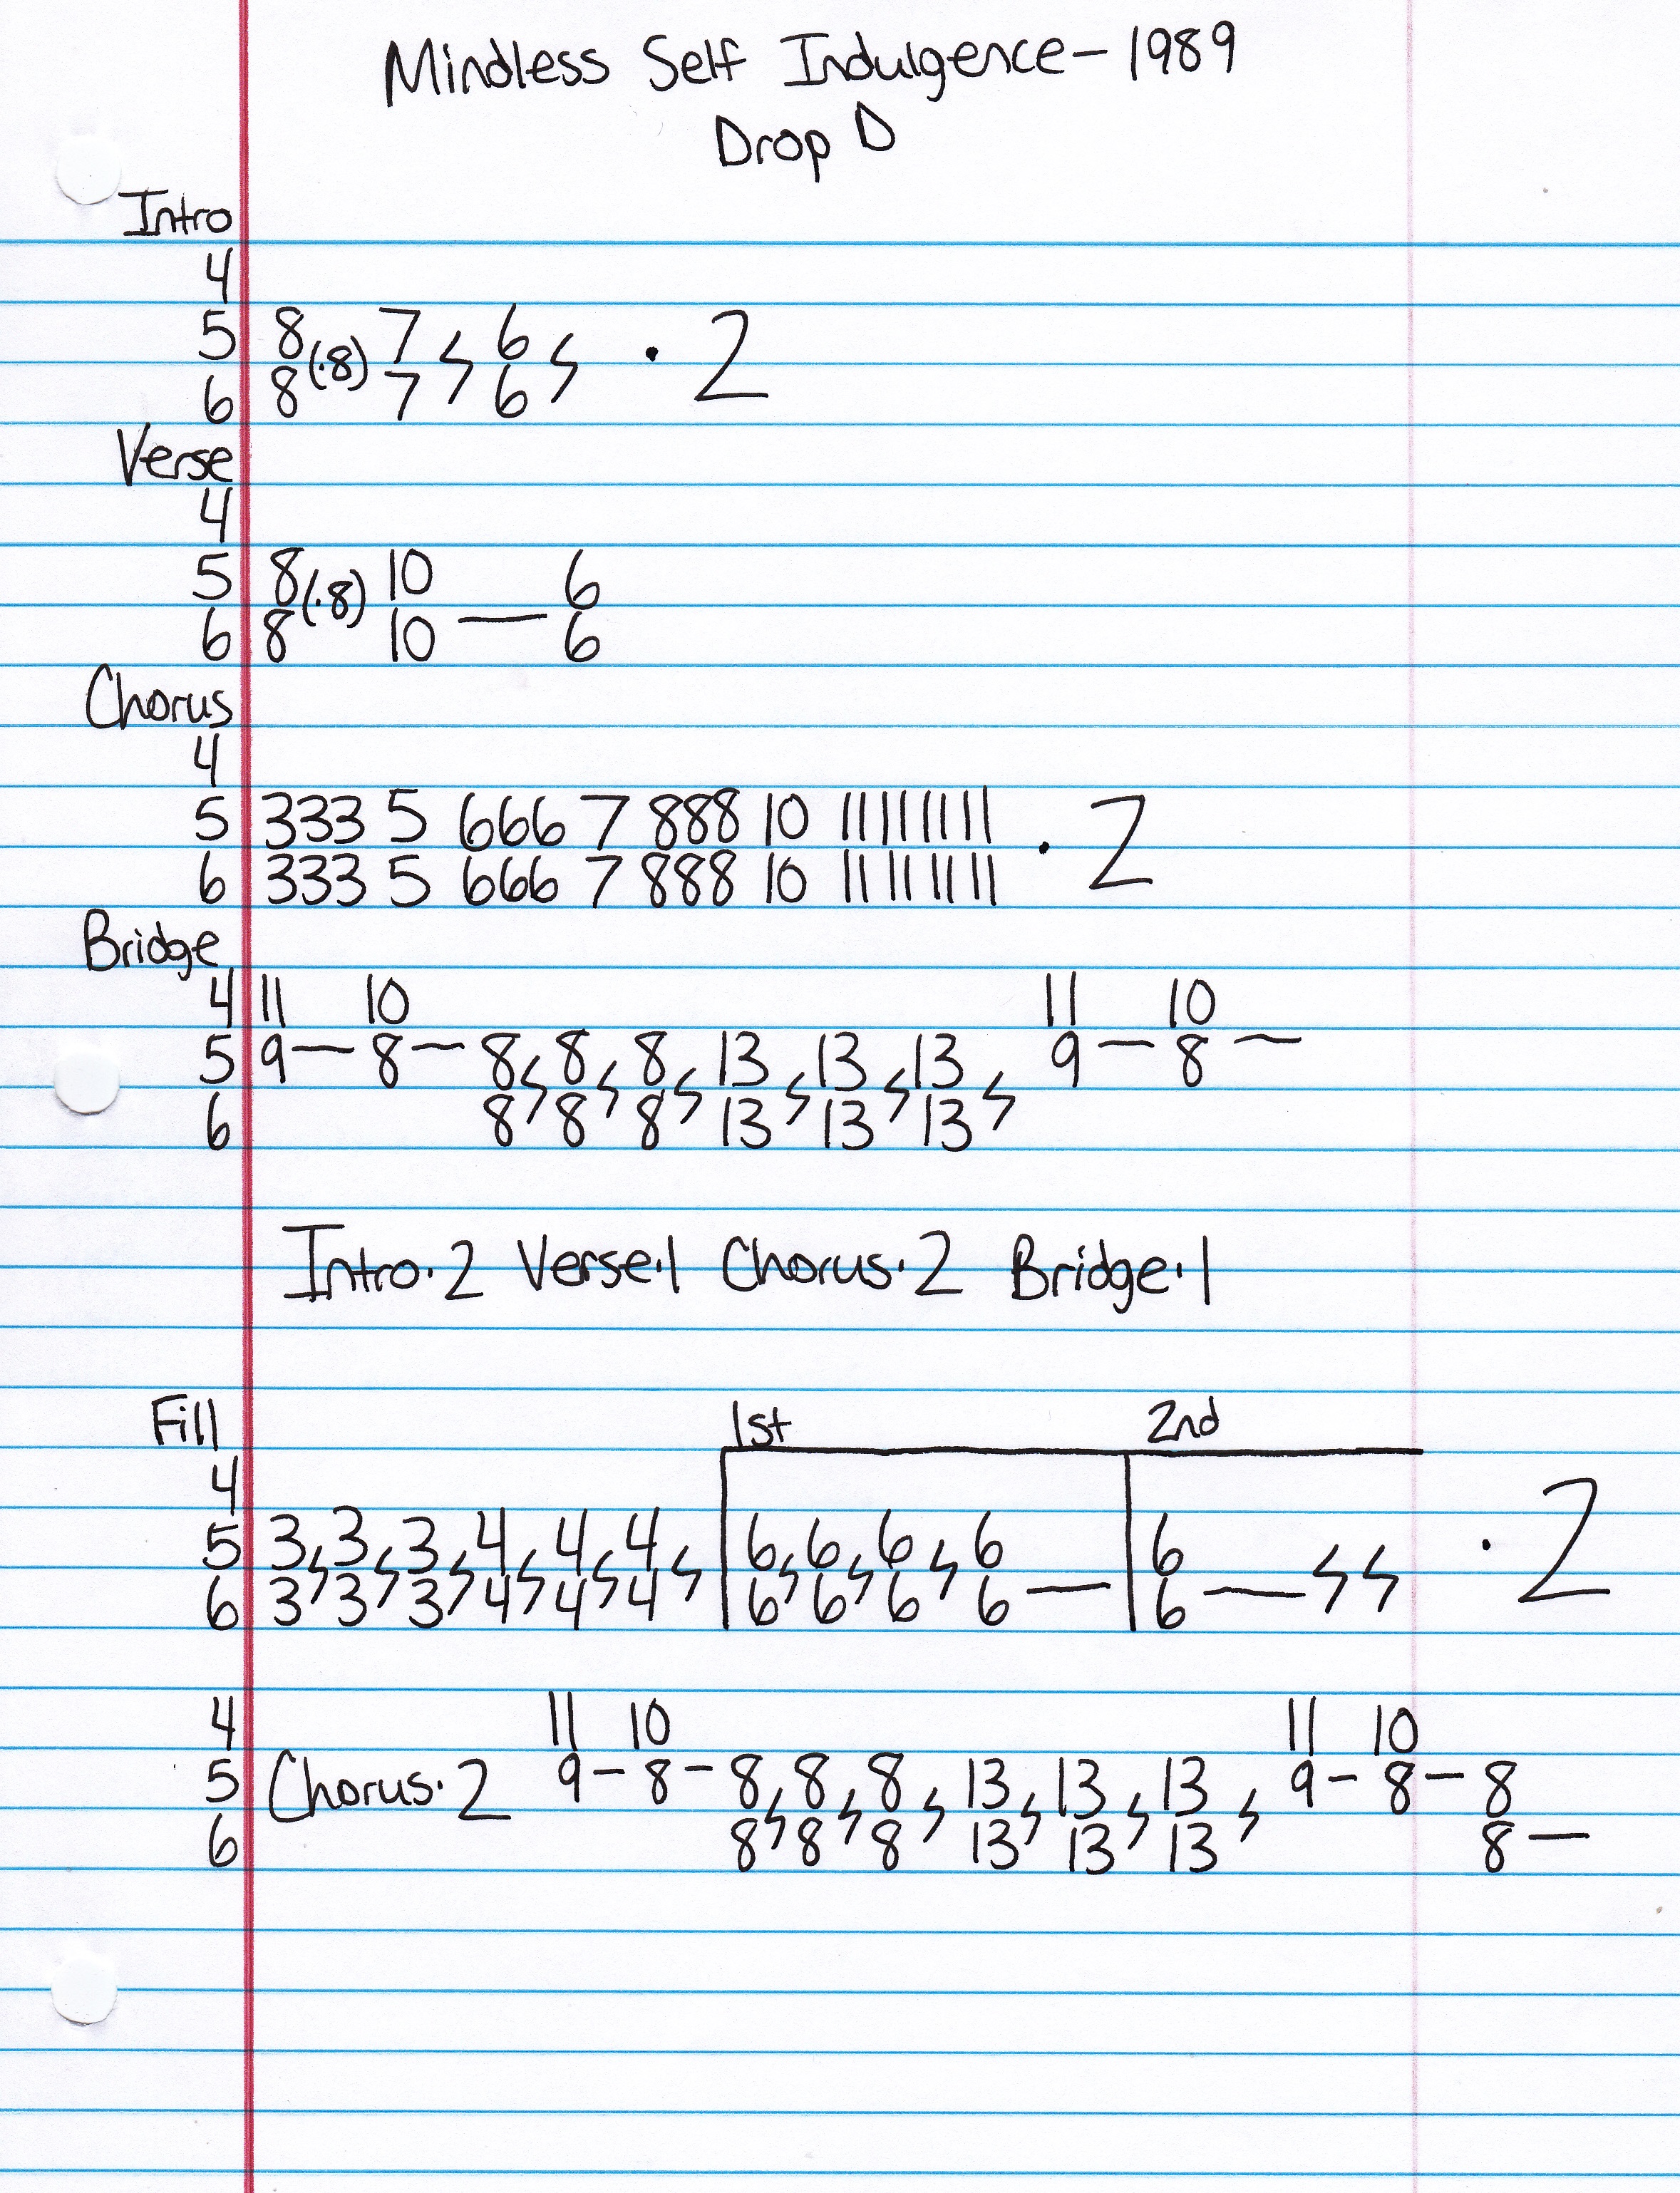 Mindless Self Indulgence - 1989
Drop D
Intro
4
5 8 (·8) 7 𝄽 6 𝄽 · 2
6 8 7 6
Verse
4
5 8 (·8) 10 — 6
6 8 10 6
Chorus
4
5 333 5 666 7 888 10 11 11 11 11 · 2
6 333 5 666 7 888 10 11 11 11 11
Bridge
4 11 10 11 10
5 9 — 8 — 8 𝄽 8 𝄽 8 𝄽 13 𝄽 13 𝄽 13 𝄽 9 — 8 —
6 8 8 8 13 13 13
Intro·2 Verse·1 Chorus·2 Bridge·1
Fill 1st 2nd
4
5 3 𝄽 3 𝄽 3 𝄽 4 𝄽 4 𝄽 4 𝄽 6 𝄽 6 𝄽 6 𝄽 6 6 𝄽 𝄽 · 2
6 3 3 3 4 4 4 6 6 6 6 — 6 —
4 11 10 11 10
5 Chorus·2 9 - 8 - 8 𝄽 8 𝄽 8 𝄽 13 𝄽 13 𝄽 13 𝄽 9 - 8 - 8
6 8 8 8 13 13 13 8 —